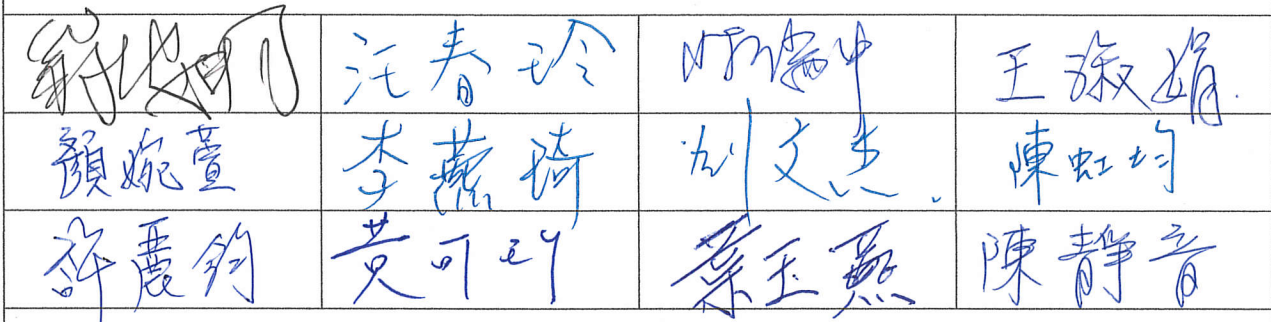 汪春玲 王淑娟
顏婉萱 李燕琦 刘文杰 陳虹均
許麗鈞 黃可 葉玉燕 陳靜音